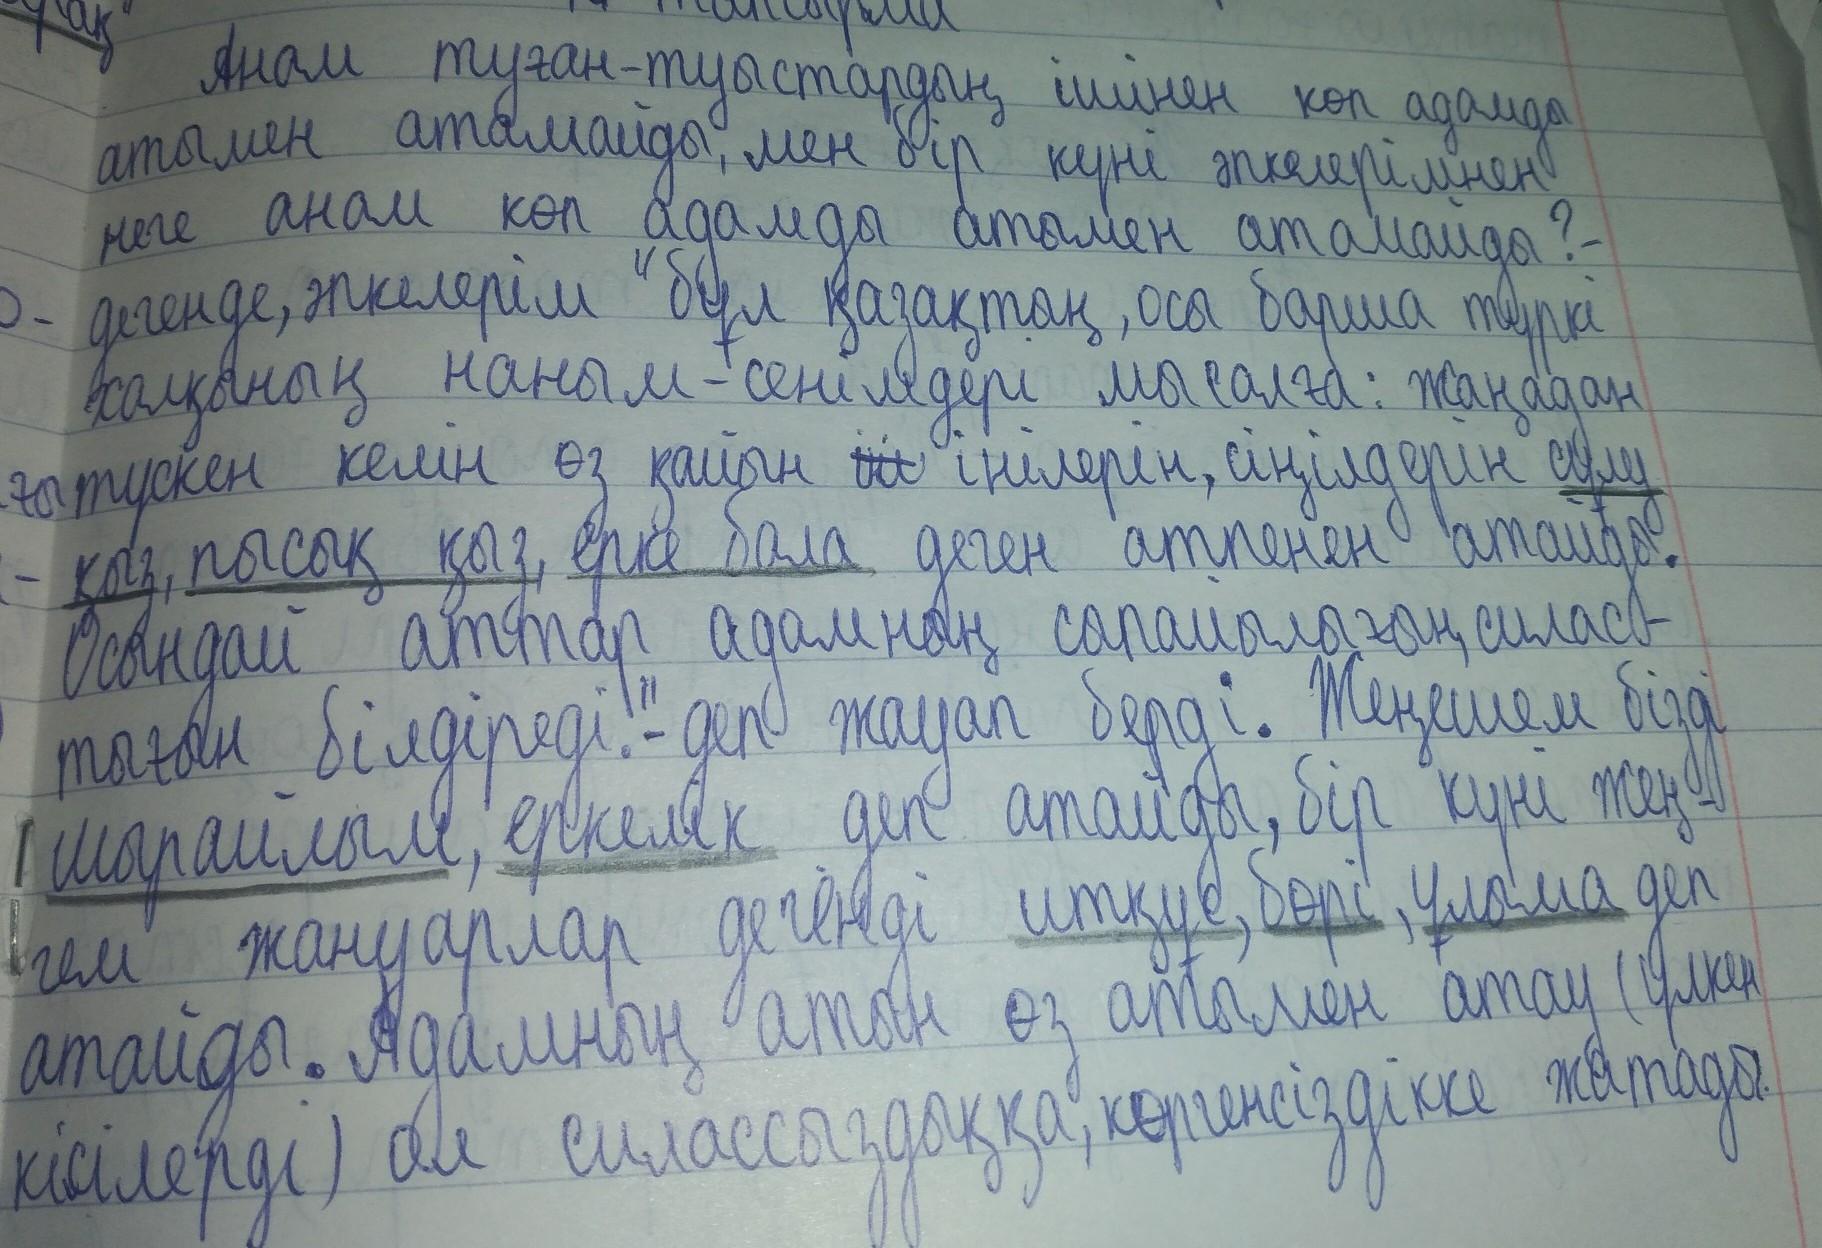 тапсырма
Анам туған-туыстардың ішінен көп адамды
атымен атамайды, мен бір күні әпкелерімнен
неге анам көп адамды атымен атамайды?-
дегенде, әпкелерім "бұл қазақтың, осы барша түркі
халқының наным-сенімдері мысалға: жаңадан
түскен келін өз қайын інілерін, сіңілдерін сұлу
қыз, пысық қыз, ерке бала деген атпенен атайды.
Осындай аттар адамның сыпайылығын, силасты-
тығын білдіреді."-деп жауап берді. Жеңешем бізді
шырайлым, еркелік деп атайды, бір күні жең-
гем жануарлар дегенді итқұс, бөрі, ұлыма деп
атайды. Адамның атын өз атымен атау (үлкен
кісілерді) ол силассыздыққа, көргенсіздікке жатады.